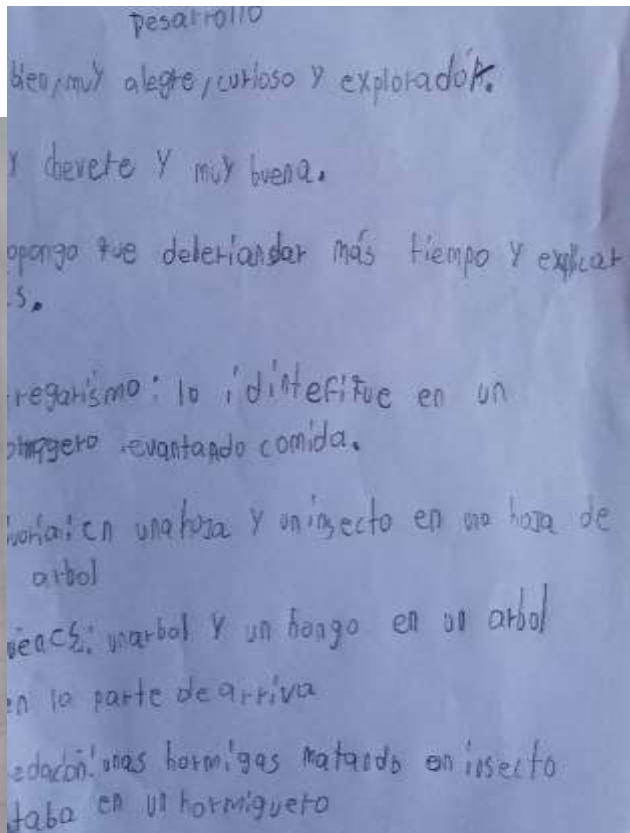 Desarrollo
bien, muy alegre, curioso y explorador.
y chevere y muy buena.
opongo que deberian dar más tiempo y explicar
s.
regarismo: lo idintefifue en un
levantando comida.
en una hoja y un insecto en una hoja de
arbol
un arbol y un hongo en un arbol
en la parte de arriva
edacón: unas hormigas matando en insecto
taba en un hormiguero